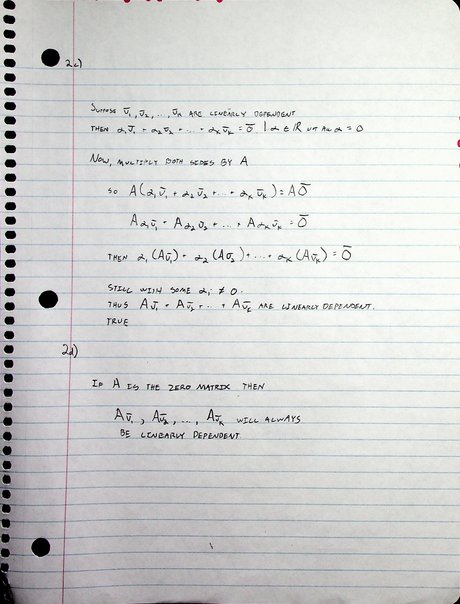 2c)
SUPPOSE v̄₁, v̄₂, ..., v̄ₖ ARE LINEARLY DEPENDENT
THEN α₁v̄₁ + α₂v̄₂ + ... + αₖv̄ₖ = 0̄ | α ∈ ℝ ALL α = 0
NOW, MULTIPLY BOTH SIDES BY A
SO A(α₁v̄₁ + α₂v̄₂ + ... + αₖv̄ₖ) = A0̄
Aα₁v̄₁ + Aα₂v̄₂ + ... + Aαₖv̄ₖ = 0̄
THEN α₁(Av̄₁) + α₂(Av̄₂) + ... + αₖ(Av̄ₖ) = 0̄
STILL WITH SOME αᵢ ≠ 0.
THUS Av̄₁ + Av̄₂ + ... + Av̄ₖ ARE LINEARLY DEPENDENT.
TRUE
2d)
IF A IS THE ZERO MATRIX THEN
Av̄₁, Av̄₂, ..., Av̄ₖ WILL ALWAYS
BE LINEARLY DEPENDENT